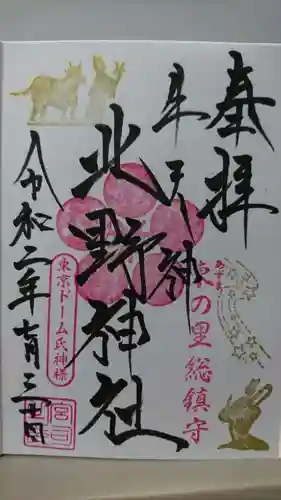 奉拝
牛天神
北野神社
令和二年七月三十日
東京ドーム氏神様
東の里総鎮守